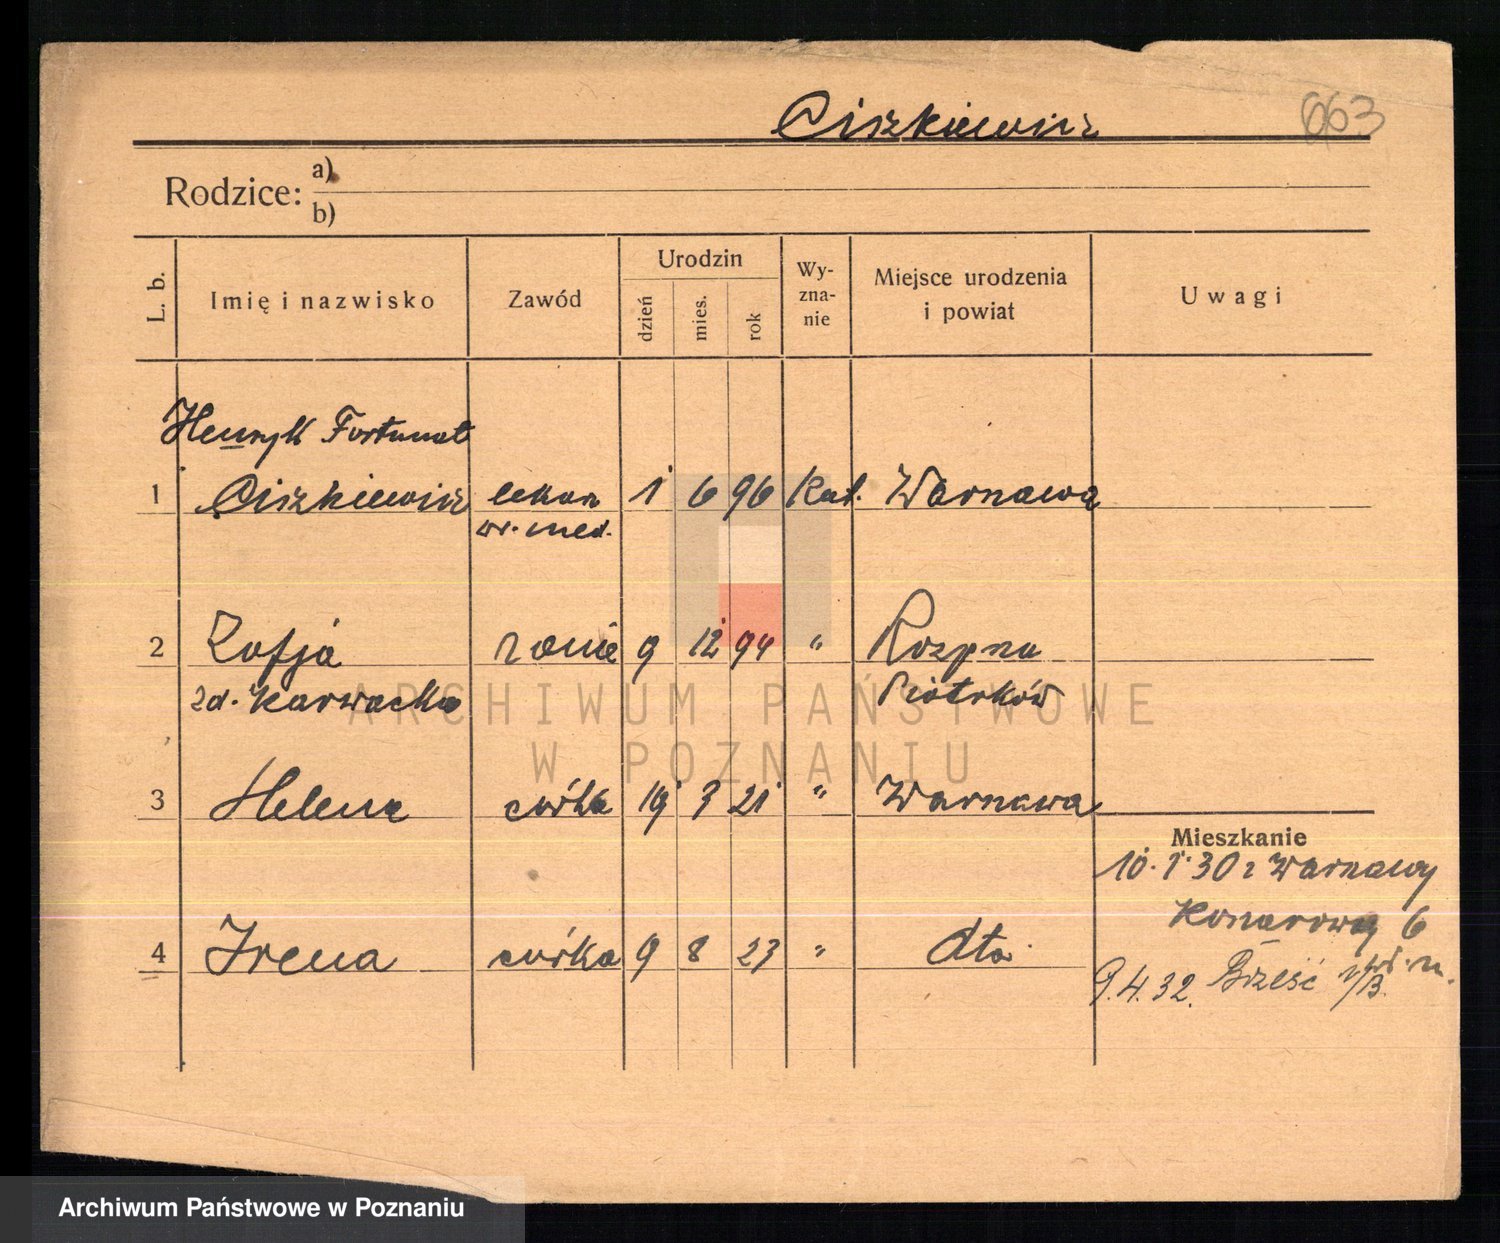 Ciszkiewicz 663
Rodzice: a)
b)
L. b.
Imię i nazwisko
Zawód
Urodzin
dzień
mies.
rok
Wy-
zna-
nie
Miejsce urodzenia
i powiat
Uwagi
Henryk Fortunat
1 Ciszkiewicz lekarz 1 6 96 Kat. Warszawa
dr. med.
2 Zofja żona 9 12 94 " Rozprza
zd. Karwacka Piotrków
3 Helena córka 19 3 21 " Warszawa
Mieszkanie
10.1.30 z Warszawy
4 Irena córka 9 8 23 " dto
9.4.32. Brześć n/B.
ARCHIWUM PAŃSTWOWE
W POZNANIU
Archiwum Państwowe w Poznaniu